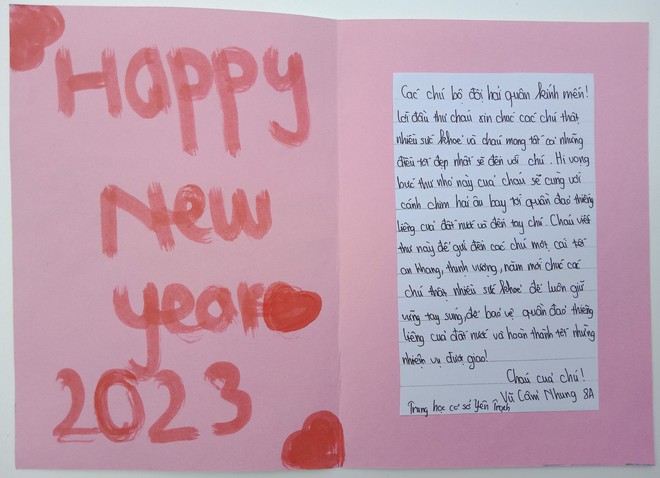 Happy
New
year
2023
Các chú bộ đội hải quân kính mến!
Lời đầu thư cháu xin chúc các chú thật
nhiều sức khoẻ và cháu mong tất cả những
điều tốt đẹp nhất sẽ đến với chú. Hi vọng
bức thư nhỏ này của cháu sẽ cùng với
cánh chim hải âu bay tới quần đảo thiêng
liêng của đất nước và đến tay chú. Cháu viết
thư này để gửi đến các chú một cái tết
an khang, thịnh vượng, năm mới chúc các
chú thật nhiều sức khoẻ để luôn giữ
vững tay súng, để bảo vệ quần đảo thiêng
liêng của đất nước và hoàn thành tốt những
nhiệm vụ được giao!
Cháu của chú!
Vũ Cẩm Nhung 8A
Trung học cơ sở Yên Trạch